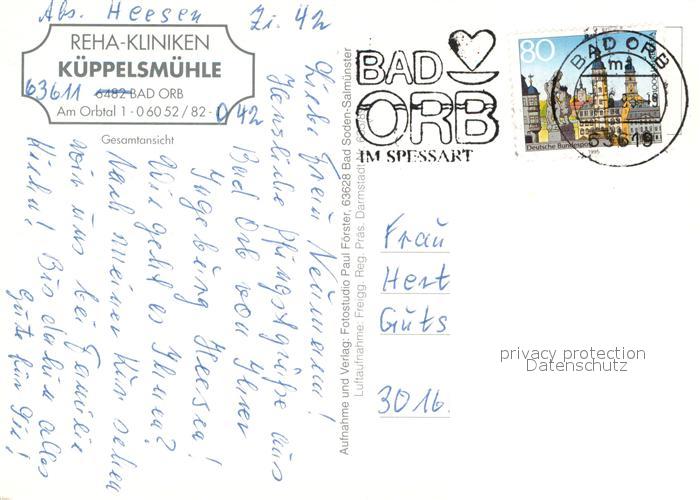 Abs. Heesen Zi. 42
REHA-KLINIKEN
KÜPPELSMÜHLE
63611 6482 BAD ORB
Am Orbtal 1 - 0 60 52 / 82 - 0 42
Gesamtansicht
Liebe Frau Neumann!
Herzliche Pfingstgrüße aus
Bad Orb von Ihrer
Ingeburg Heesen!
Wie geht es Ihnen?
Nach meiner Kur sehen
wir uns bei Familie
Hicku! Bis dahin alles
Gute für Sie!
Aufnahme und Verlag: Fotostudio Paul Förster, 63628 Bad Soden-Salmünster
Luftaufnahme: Freigg. Reg. Präs. Darmstadt
BAD
ORB
IM SPESSART
80
Deutsche Bundespost
1995
BAD ORB
63619
Frau
Hert
Guts
3016.
privacy protection
Datenschutz